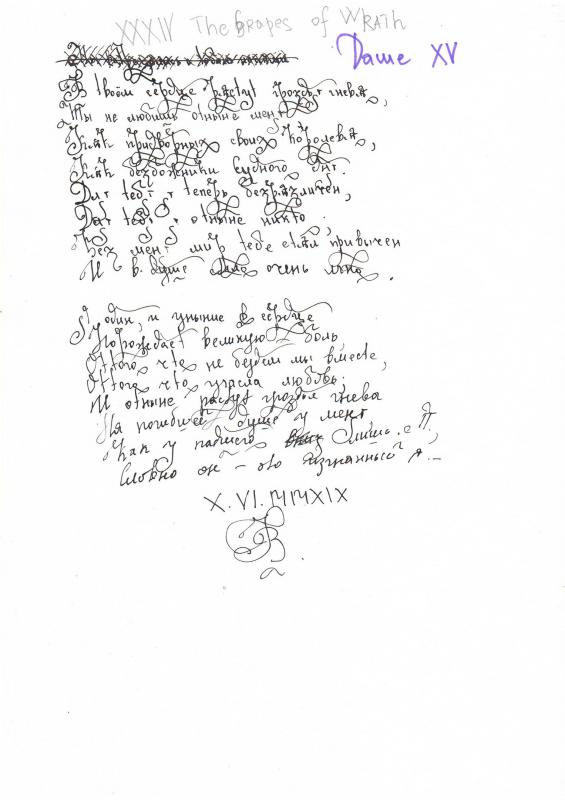 XXXIV The Grapes of Wrath
Даше XV
В твоём сердце растут гроздья гнева,
Ты не любишь отныне меня,
Как придворных своих королева,
Как безбожники судного дня.
Для тебя я теперь безразличен,
Для тебя я отныне никто,
Без меня мир тебе стал привычен
И в душе очень
Я один, и уныние в сердце
Порождает великую боль,
Оттого, что не будем мы вместе,
Оттого, что угасла любовь;
И отныне растут гроздья гнева
На погибшей душе у меня,
Как у падшего лишь
Словно он - это изгнанный я.-
X.VI.MMXIX